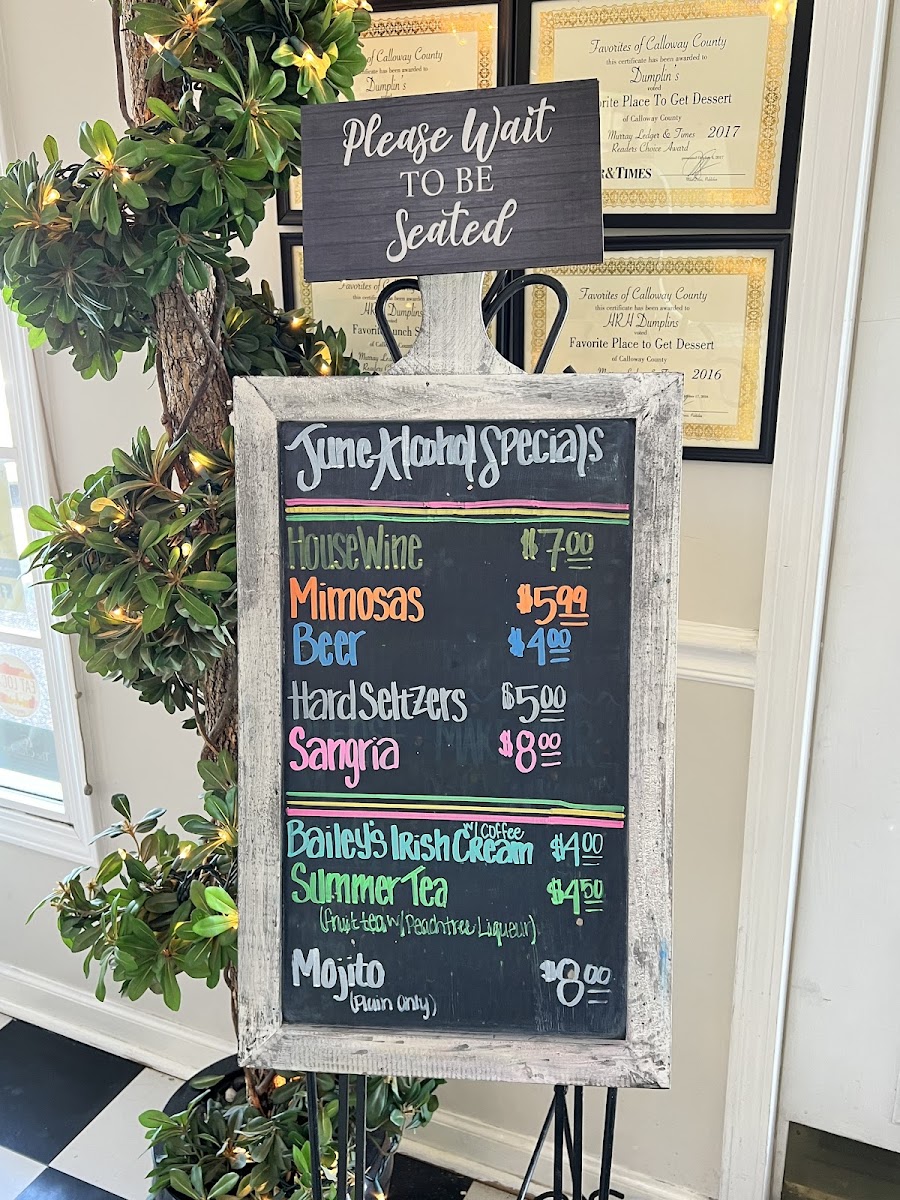 Favorites of Calloway County
certificate has been awarded to
Dumplin's
voted
of Calloway County
Favorites of Calloway County
this certificate has been awarded to
Dumplin's
voted
Place To Get Dessert
of Calloway County
Murray Ledger & Times 2017
Readers Choice Award
&TIMES
Please Wait
TO BE
Seated
Favorites of Calloway County
this certificate has been awarded to
HRH Dumplins
voted
Favorite Place to Get Dessert
of Calloway County
2016
June Alcohol Specials
House Wine $7.00
Mimosas $5.99
Beer $4.00
Hard Seltzers $5.00
Sangria $8.00
Bailey's Irish Cream w/ Coffee $4.00
Summer Tea $4.50
(Fruit tea w/ Peachtree Liqueur)
Mojito $8.00
(Plain Only)